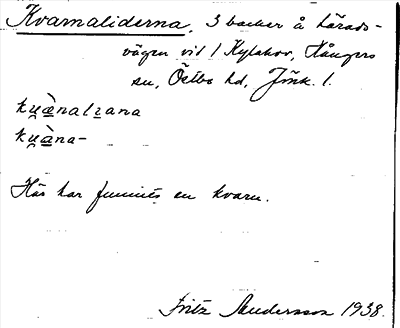 Kvarnaliderna, 3 backar å härads-
vägen vid 1 Kylahov, Kångers
sn, Östbo hd, Jönk. l.
ku̯ænalɩana
ku̯àna-
Här har funnits en kvarn.
Fritz Andersson 1938.